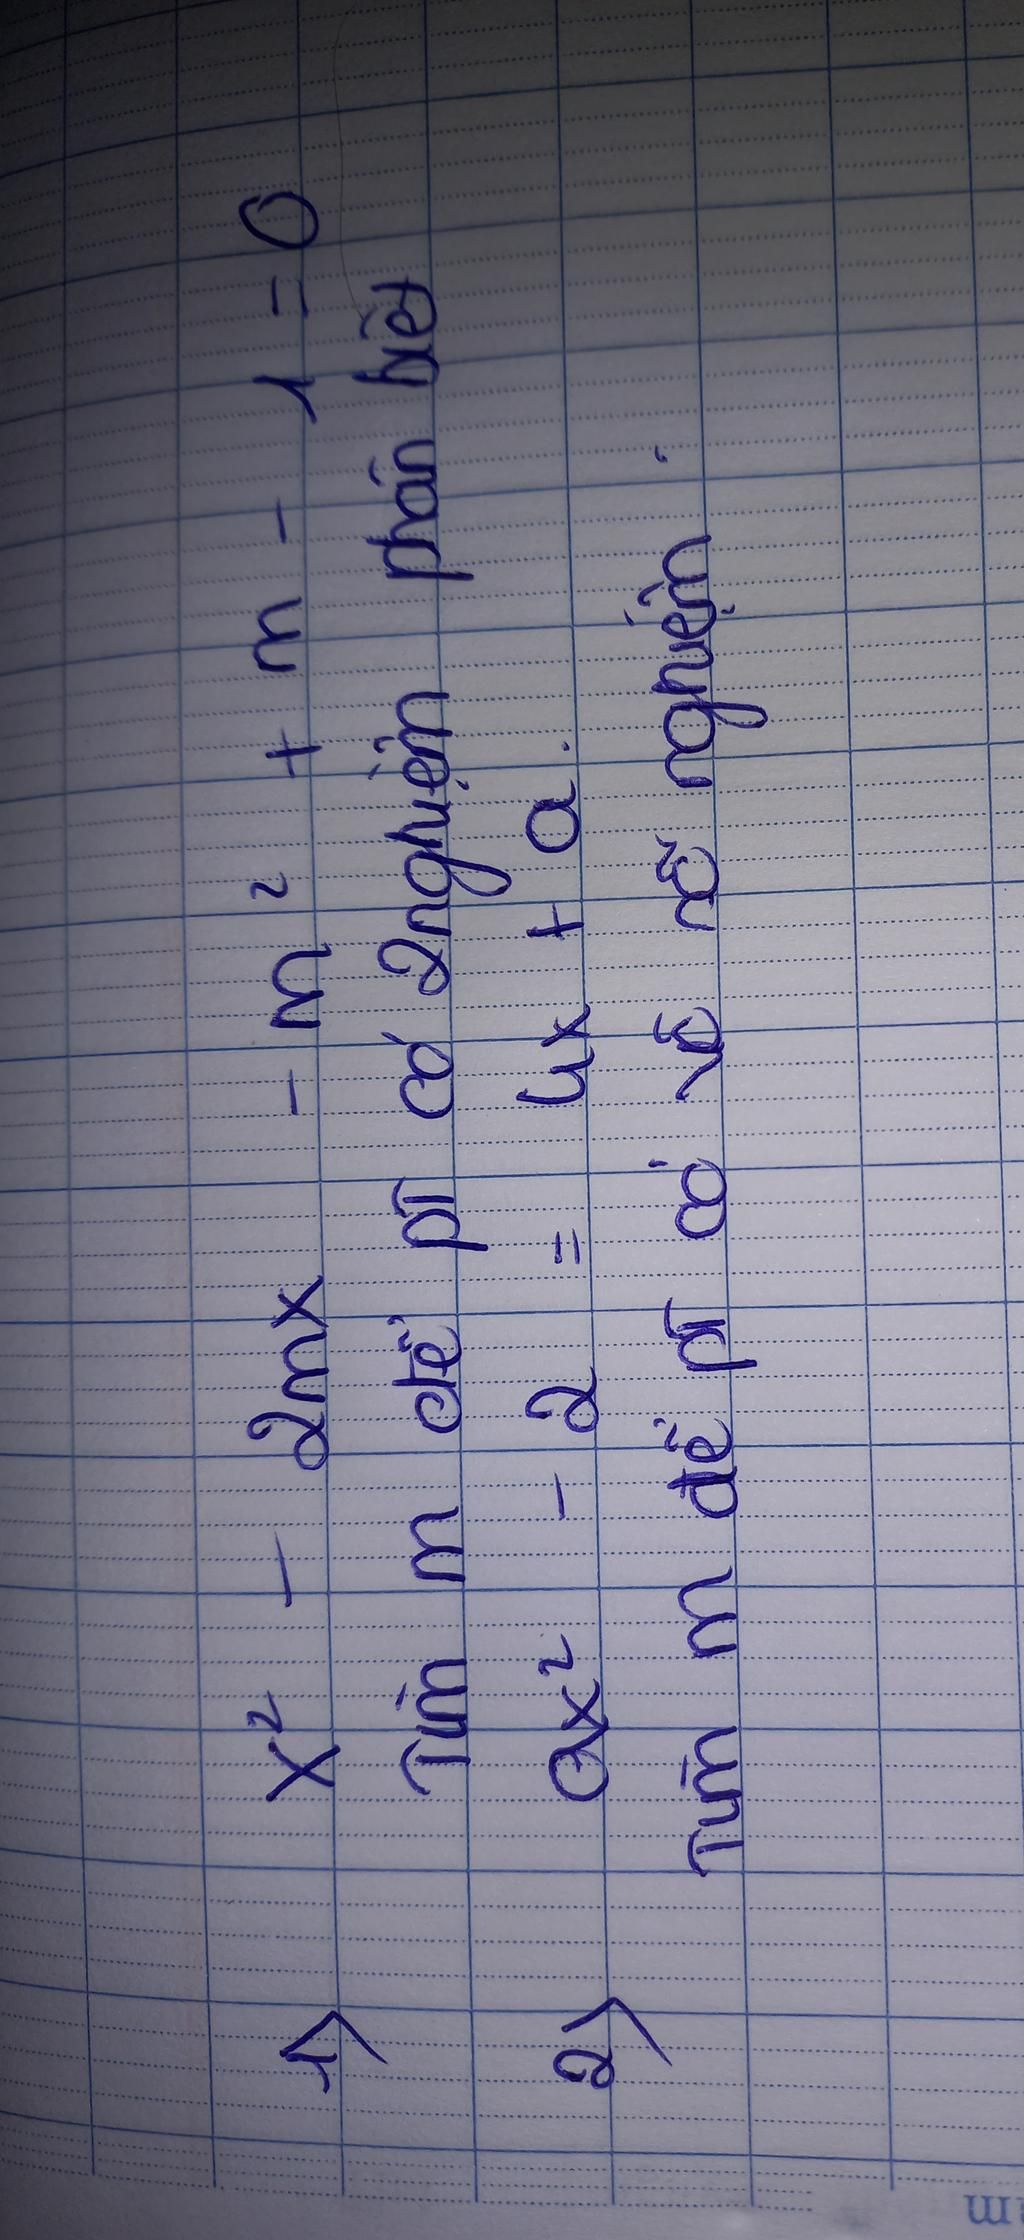 1) x² - 2mx - m² + m - 1 = 0
Tìm m để pt có 2 nghiệm phân biệt
2) ax² - 2 = 4x + a.
Tìm m để pt có vô nô nghiệm.